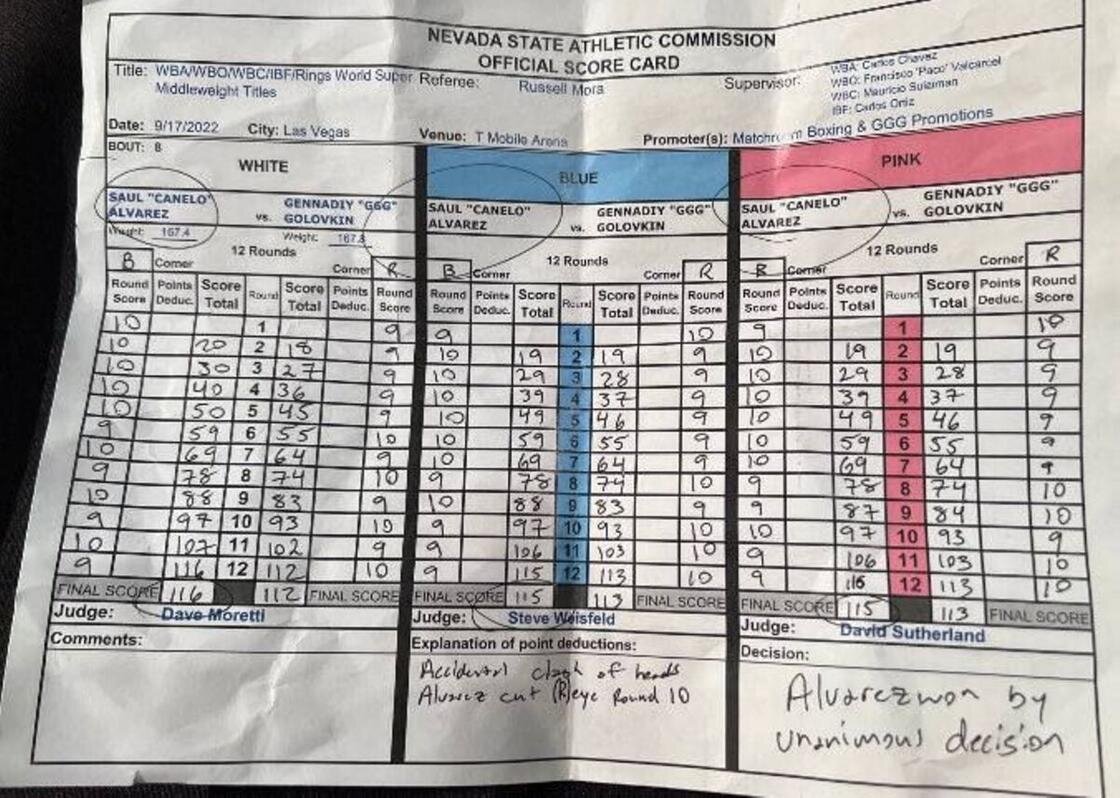 NEVADA STATE ATHLETIC COMMISSION
OFFICIAL SCORE CARD
Title: WBA/WBO/WBC/IBF/Rings World Super Middleweight Titles
Referee: Russell Mora
Supervisor: WBA: Carlos Chavez
WBO: Francisco 'Paco' Valcarcel
WBC: Mauricio Sulaiman
IBF: Carlos Ortiz
Date: 9/17/2022 City: Las Vegas Venue: T Mobile Arena Promoter(s): Matchroom Boxing & GGG Promotions
BOUT: 8
WHITE BLUE PINK
SAUL "CANELO" ALVAREZ vs. GENNADIY "GGG" GOLOVKIN
Weight: 167.4 Weight: 167.8
SAUL "CANELO" ALVAREZ vs. GENNADIY "GGG" GOLOVKIN
SAUL "CANELO" ALVAREZ vs. GENNADIY "GGG" GOLOVKIN
12 Rounds 12 Rounds 12 Rounds
B Corner Corner R B Corner Corner R B Corner Corner R
Round Score Points Deduc. Score Total Round Score Total Points Deduc. Round Score Round Score Points Deduc. Score Total Round Score Total Points Deduc. Round Score Round Score Points Deduc. Score Total Round Score Total Points Deduc. Round Score
10 1 9 9 1 10 9 1 10
10 20 2 18 9 10 19 2 19 9 10 19 2 19 9
10 30 3 27 9 10 29 3 28 9 10 29 3 28 9
10 40 4 36 9 10 39 4 37 9 10 39 4 37 9
10 50 5 45 9 10 49 5 46 9 10 49 5 46 9
9 59 6 55 10 10 59 6 55 9 10 59 6 55 9
10 69 7 64 9 10 69 7 64 9 10 69 7 64 9
9 78 8 74 10 9 78 8 74 10 9 78 8 74 10
10 88 9 83 9 10 88 9 83 9 9 87 9 84 10
9 97 10 93 10 9 97 10 93 10 10 97 10 93 9
10 107 11 102 9 9 106 11 103 10 9 106 11 103 10
9 116 12 112 10 9 115 12 113 10 9 12 113 10
FINAL SCORE 116 112 FINAL SCORE FINAL SCORE 115 113 FINAL SCORE FINAL SCORE 115 113 FINAL SCORE
Judge: Dave Moretti Judge: Steve Weisfeld Judge: David Sutherland
Comments:
Explanation of point deductions:
Accidental clash of heads
Alvarez cut (R) eye Round 10
Decision:
Alvarez won by
unanimous decision